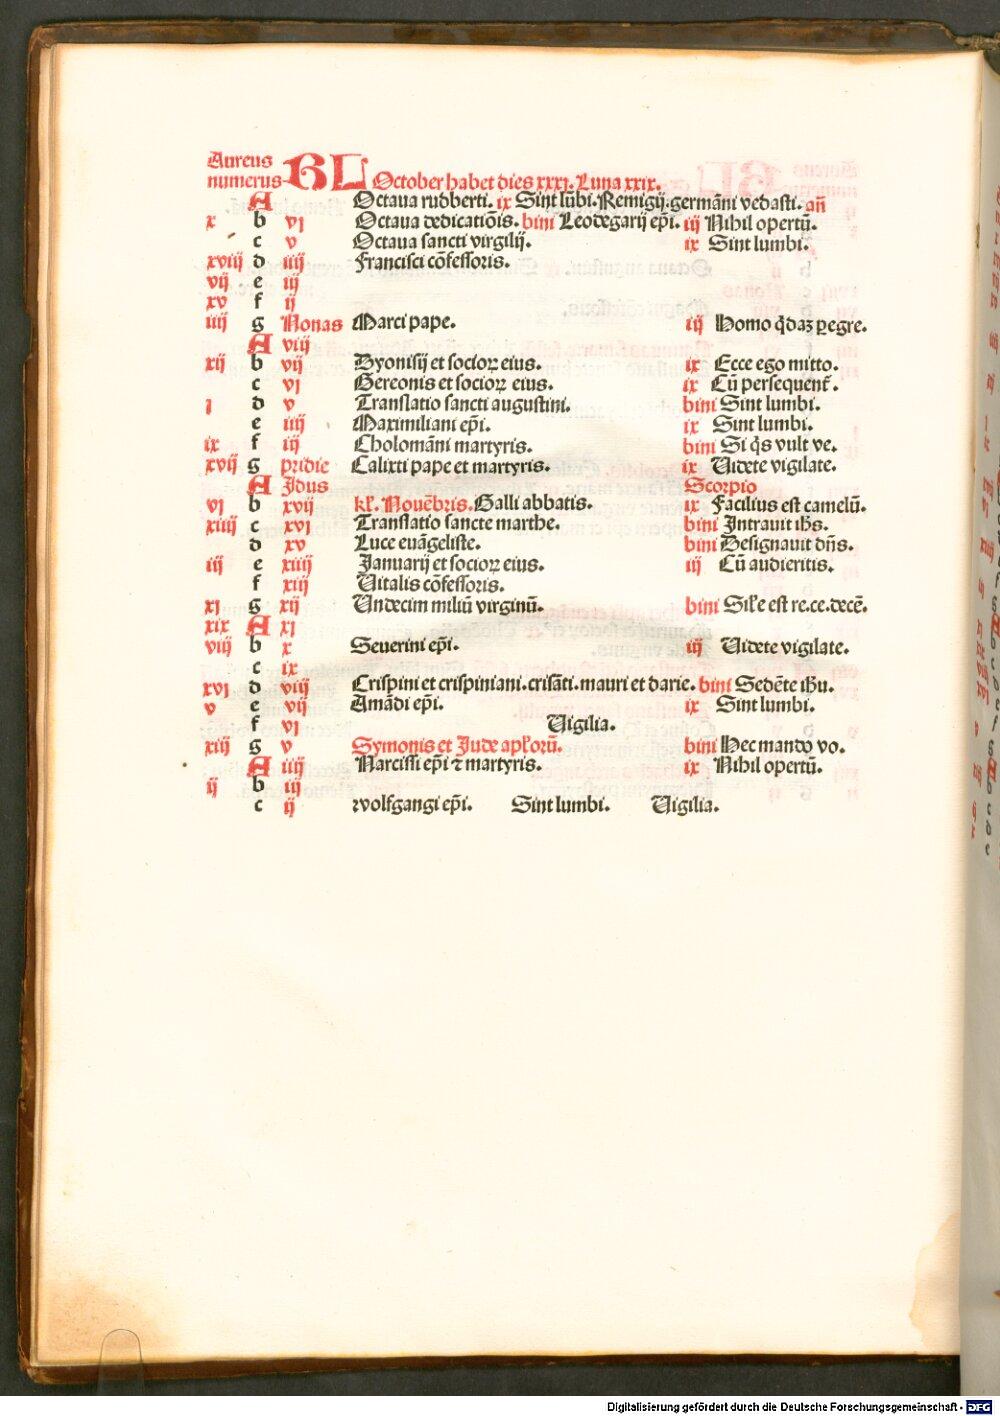 Aureus
numerus KL October habet dies xxxj. Luna xxix.
A Octaua rudberti. ix Sint lūbi. Remigij. germāni vedasti. añ
x b vj Octaua dedicatiōis. bini Leodegarij ep̄i. iij Nihil opertū.
c v Octaua sancti virgilij. ix Sint lumbi.
xviij d iiij Francisci cōfessoris.
vij e iij
xv f ij
iiij g Nonas Marci pape. iij Homo q̄daꝫ ꝑegre.
A viij
xij b vij Dyonisij et socioꝝ eius. ix Ecce ego mitto.
c vj Gereonis et socioꝝ eius. ix Cū persequent̄.
j d v Translatio sancti augustini. bini Sint lumbi.
e iiij Maximiliani ep̄i. ix Sint lumbi.
ix f iij Cholomāni martyris. bini Si q̄s vult ve.
xvij g pridie Calixti pape et martyris. ix Uidete vigilate.
A Idus Scorpio
vj b xvij kł. Nouēbris. Galli abbatis. ix Facilius est camelū.
xiiij c xvj Translatio sancte marthe. bini Intrauit ih̄s.
d xv Luce euāgeliste. bini Designauit dn̄s.
iij e xiiij Januarij et socioꝝ eius. iij Cū audieritis.
f xiij Uitalis cōfessoris.
xj g xij Undecim miliū virginū. bini Sił'e est re.ce.decē.
xix A xj
viij b x Seuerini ep̄i. iij Uidete vigilate.
c ix
xvj d viij Crispini et crispiniani. crisāti. mauri et darie. bini Sedēte ih̄u.
v e vij Amādi ep̄i. ix Sint lumbi.
f vj Uigilia.
xiij g v Symonis et Jude apłorū. bini Hec mando vo.
A iiij Narcissi ep̄i ⁊ martyris. ix Nihil opertū.
ij b iij
c ij wolfgangi ep̄i. Sint lumbi. Uigilia.
Digitalisierung gefördert durch die Deutsche Forschungsgemeinschaft - DFG